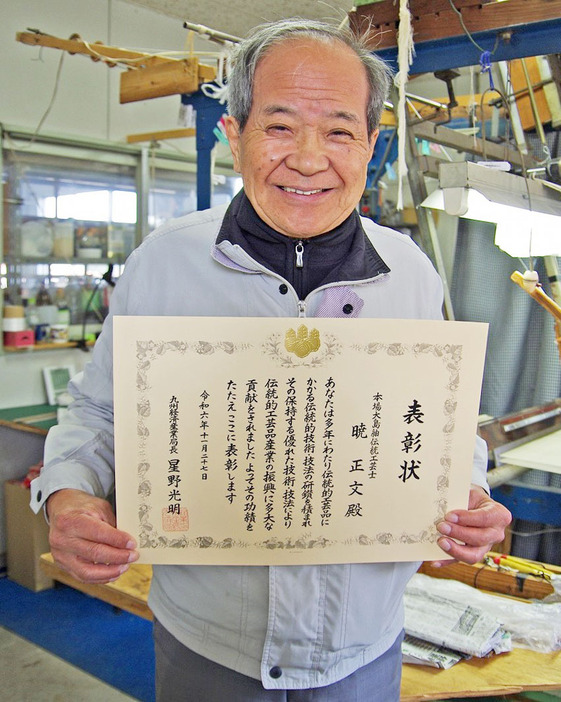 表彰状
本場大島紬伝統工芸士
暁 正文 殿
あなたは多年にわたり伝統的工芸品に
かかる伝統的技術技法の研鑽を積まれ
その保持する優れた技術技法により
伝統的工芸品産業の振興に多大な
貢献をされました よってその功績を
たたえここに表彰します
令和六年十一月二十七日
九州経済産業局長 星野光明